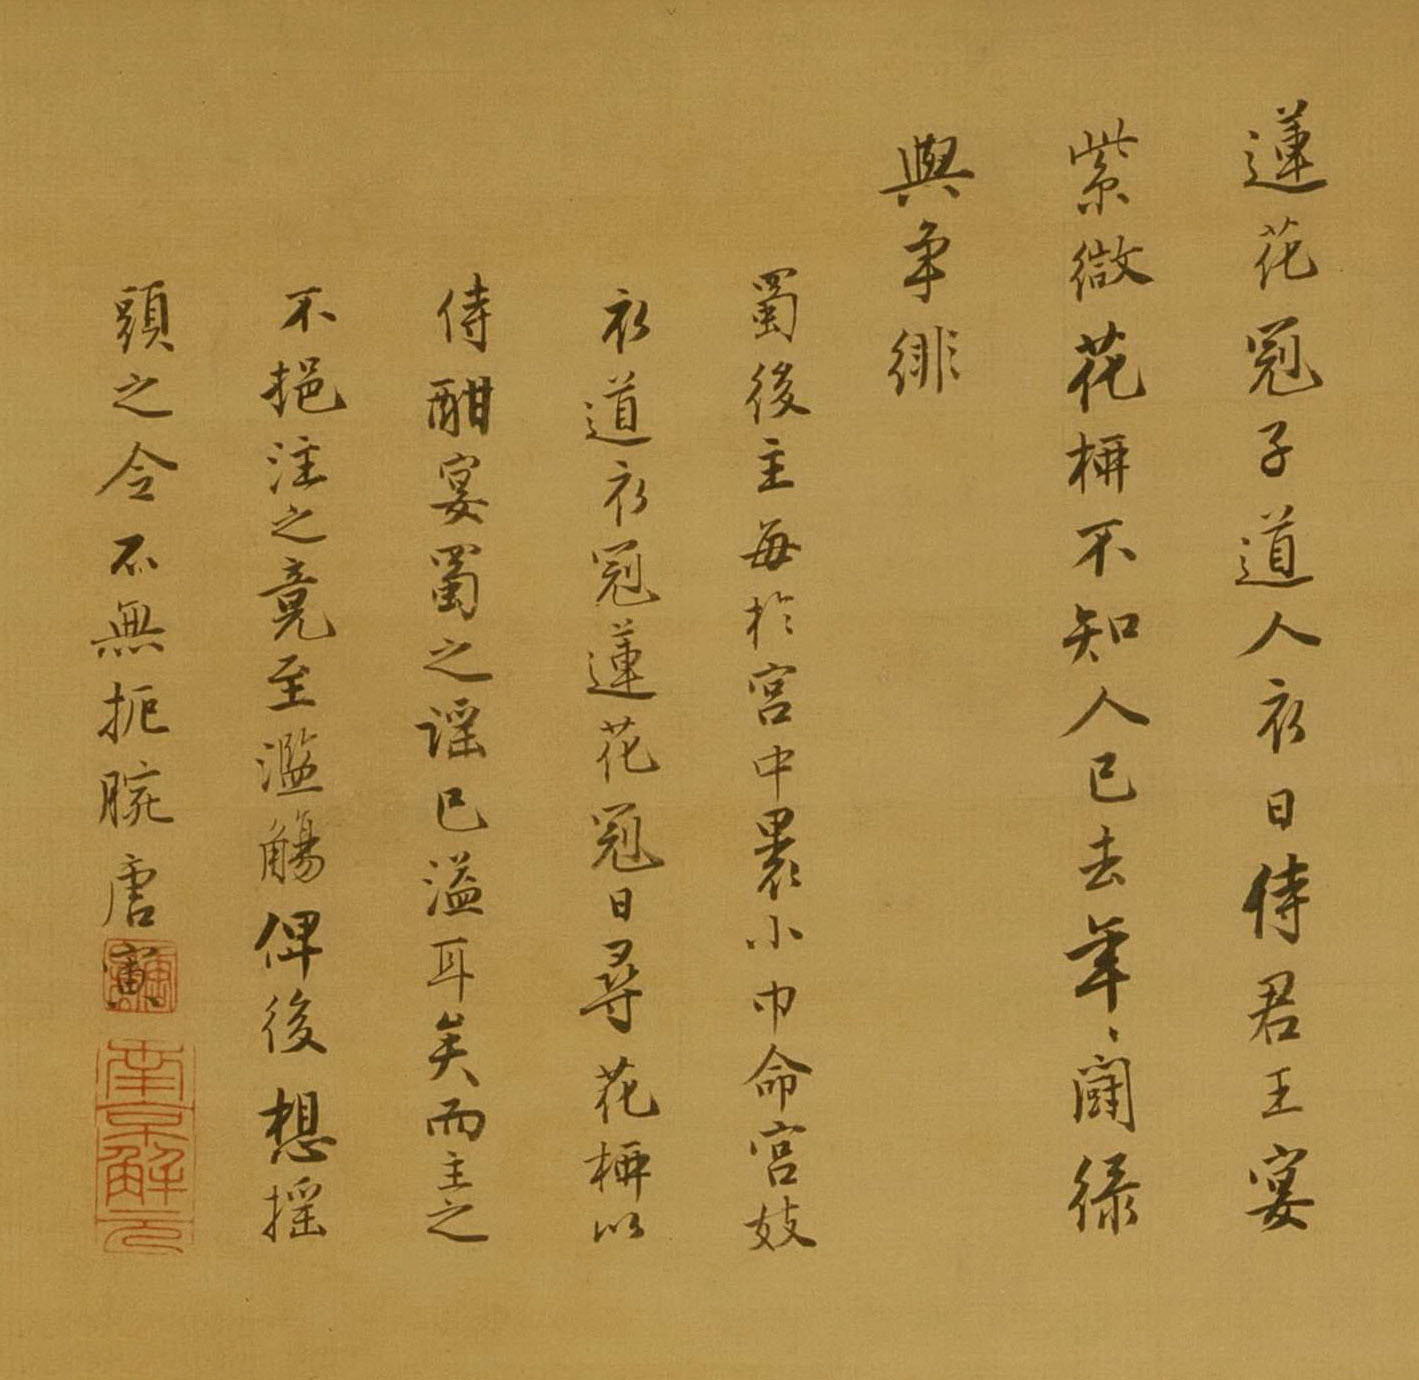 蓮花冠子道人衣日侍君王宴
紫微花柳不知人已去年〻鬪綠
與爭緋
蜀後主每於宮中裹小巾命宮妓
衣道衣冠蓮花冠日尋花柳以
侍酣宴蜀之謡已溢耳矣而主之
不挹注之竟至濫觴俾後想摇
頭之令不無扼腕唐寅
南京解元